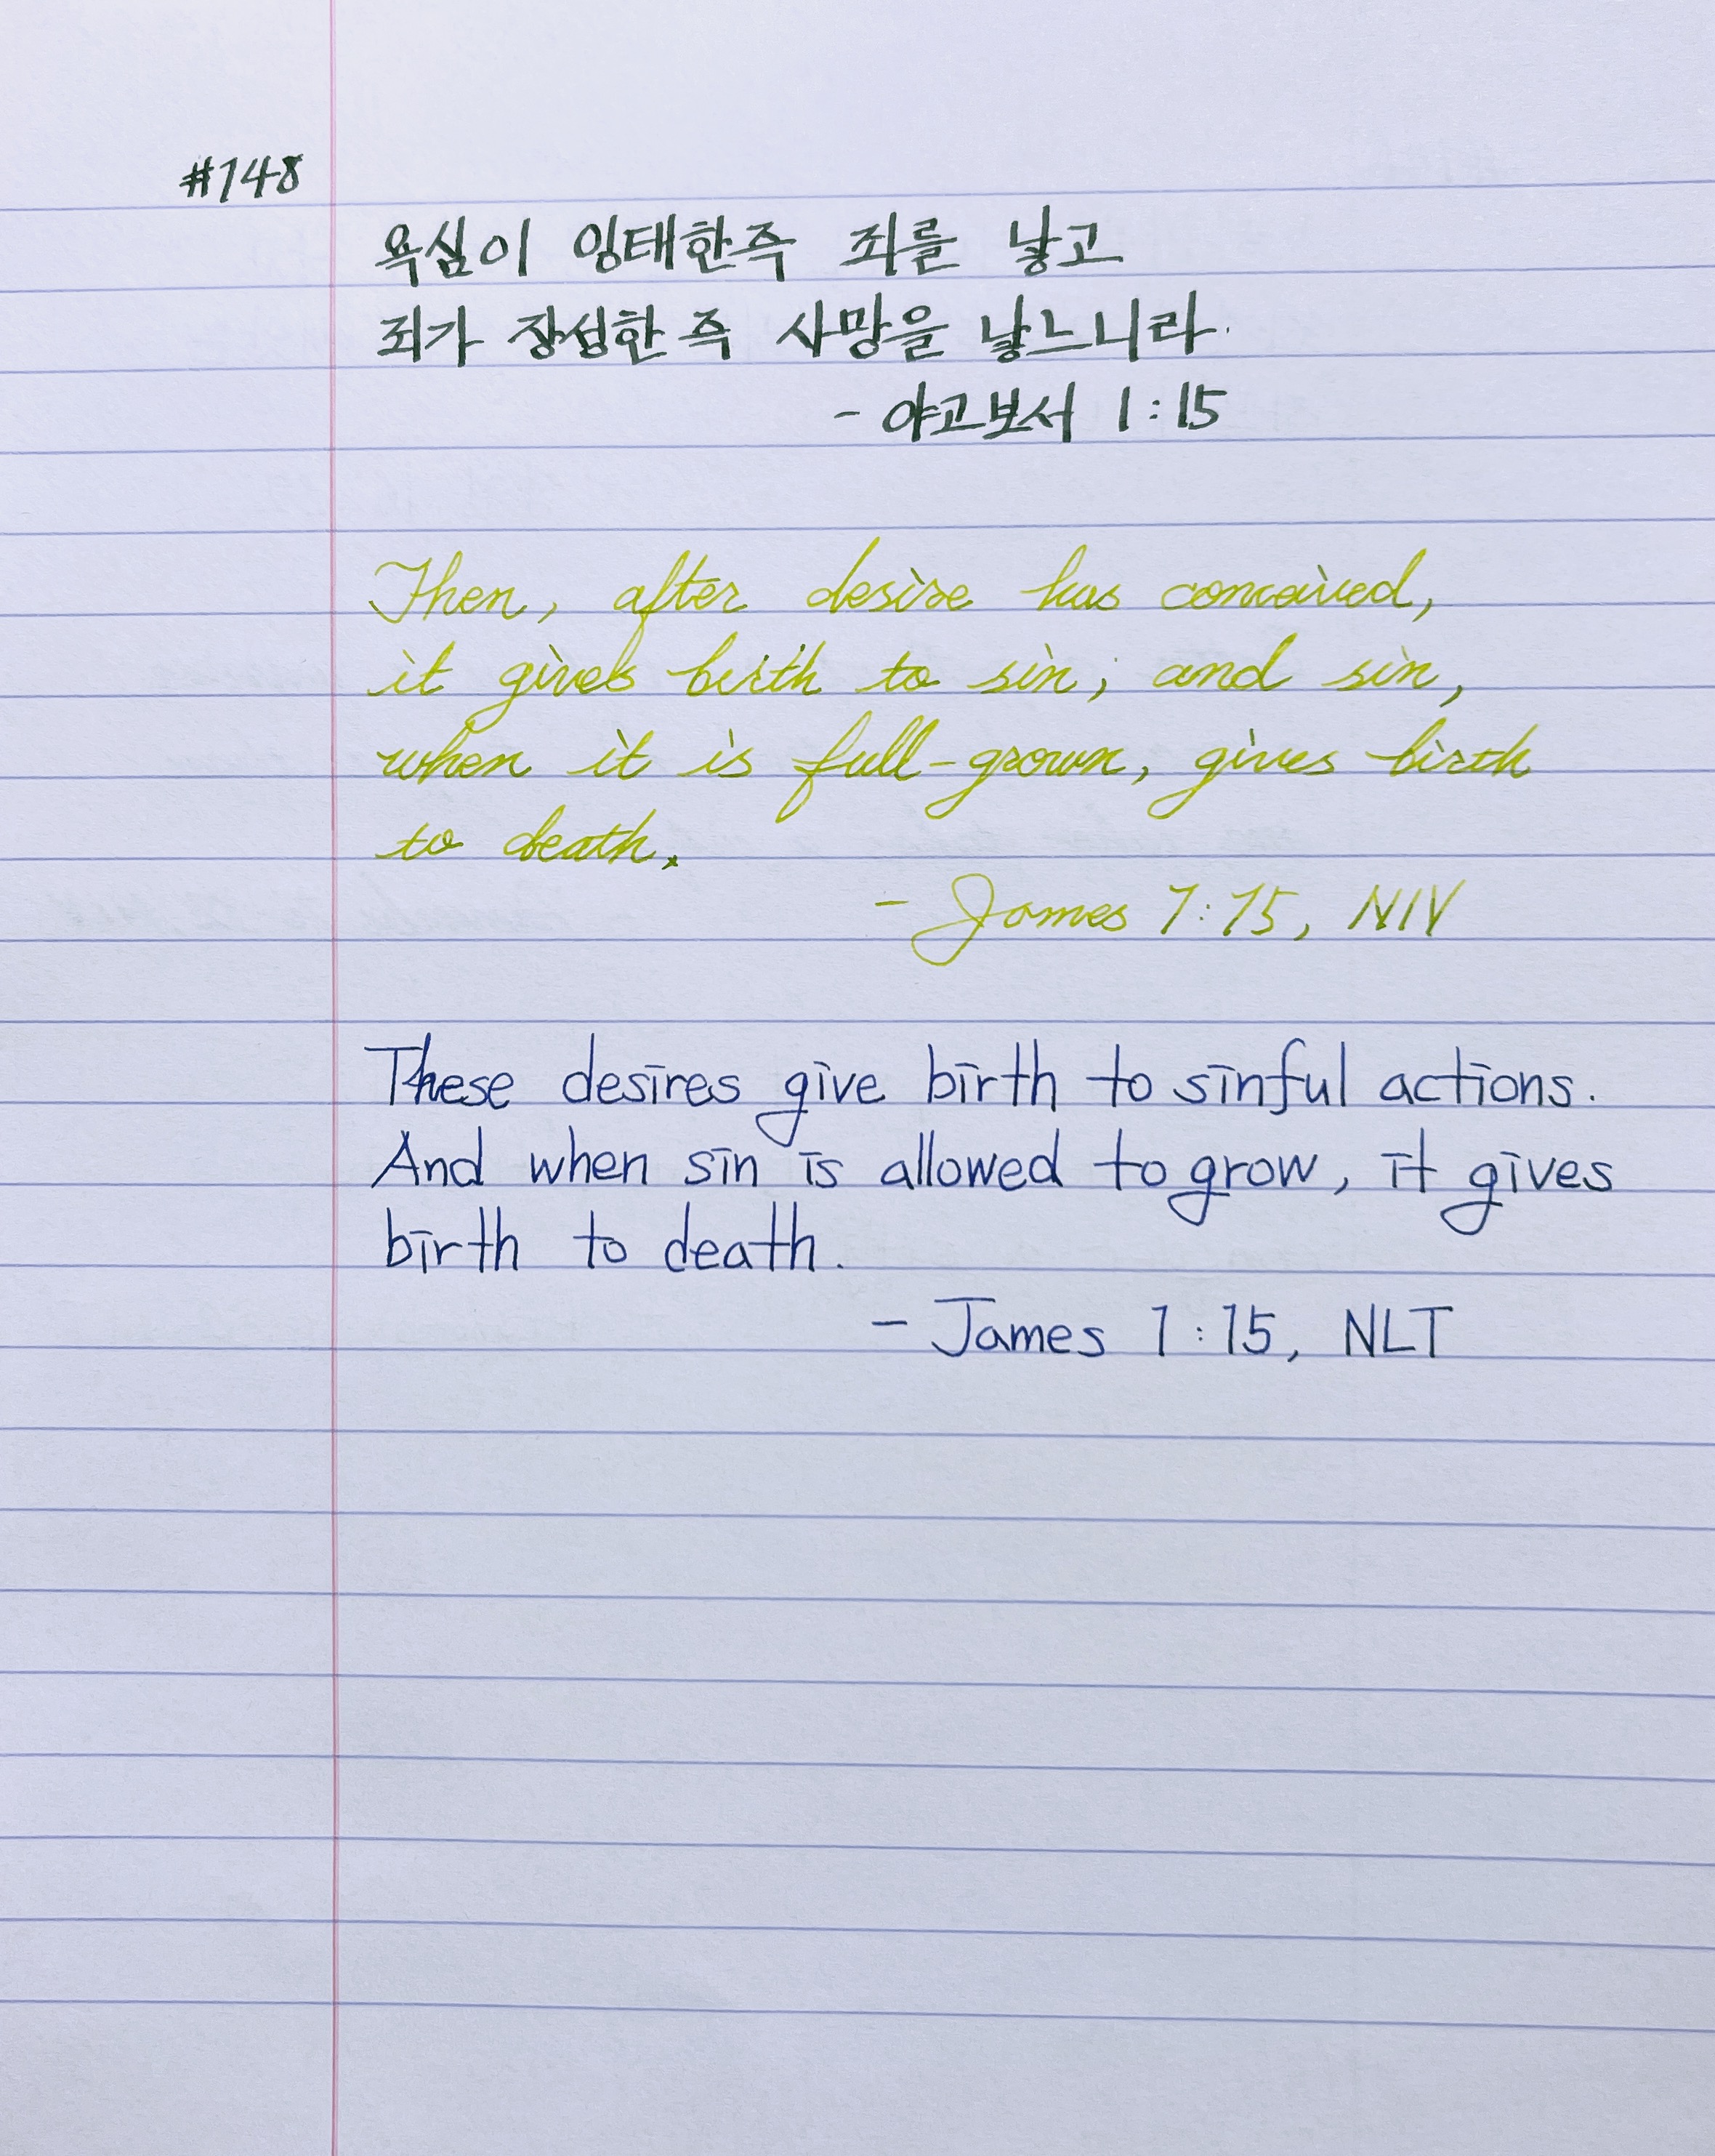 #148
욕심이 잉태한즉 죄를 낳고
죄가 장성한즉 사망을 낳느니라.
- 야고보서 1:15
Then, after desire has conceived,
it gives birth to sin; and sin,
when it is full-grown, gives birth
to death.
- James 1:15, NIV
These desires give birth to sinful actions.
And when sin is allowed to grow, it gives
birth to death.
- James 1:15, NLT